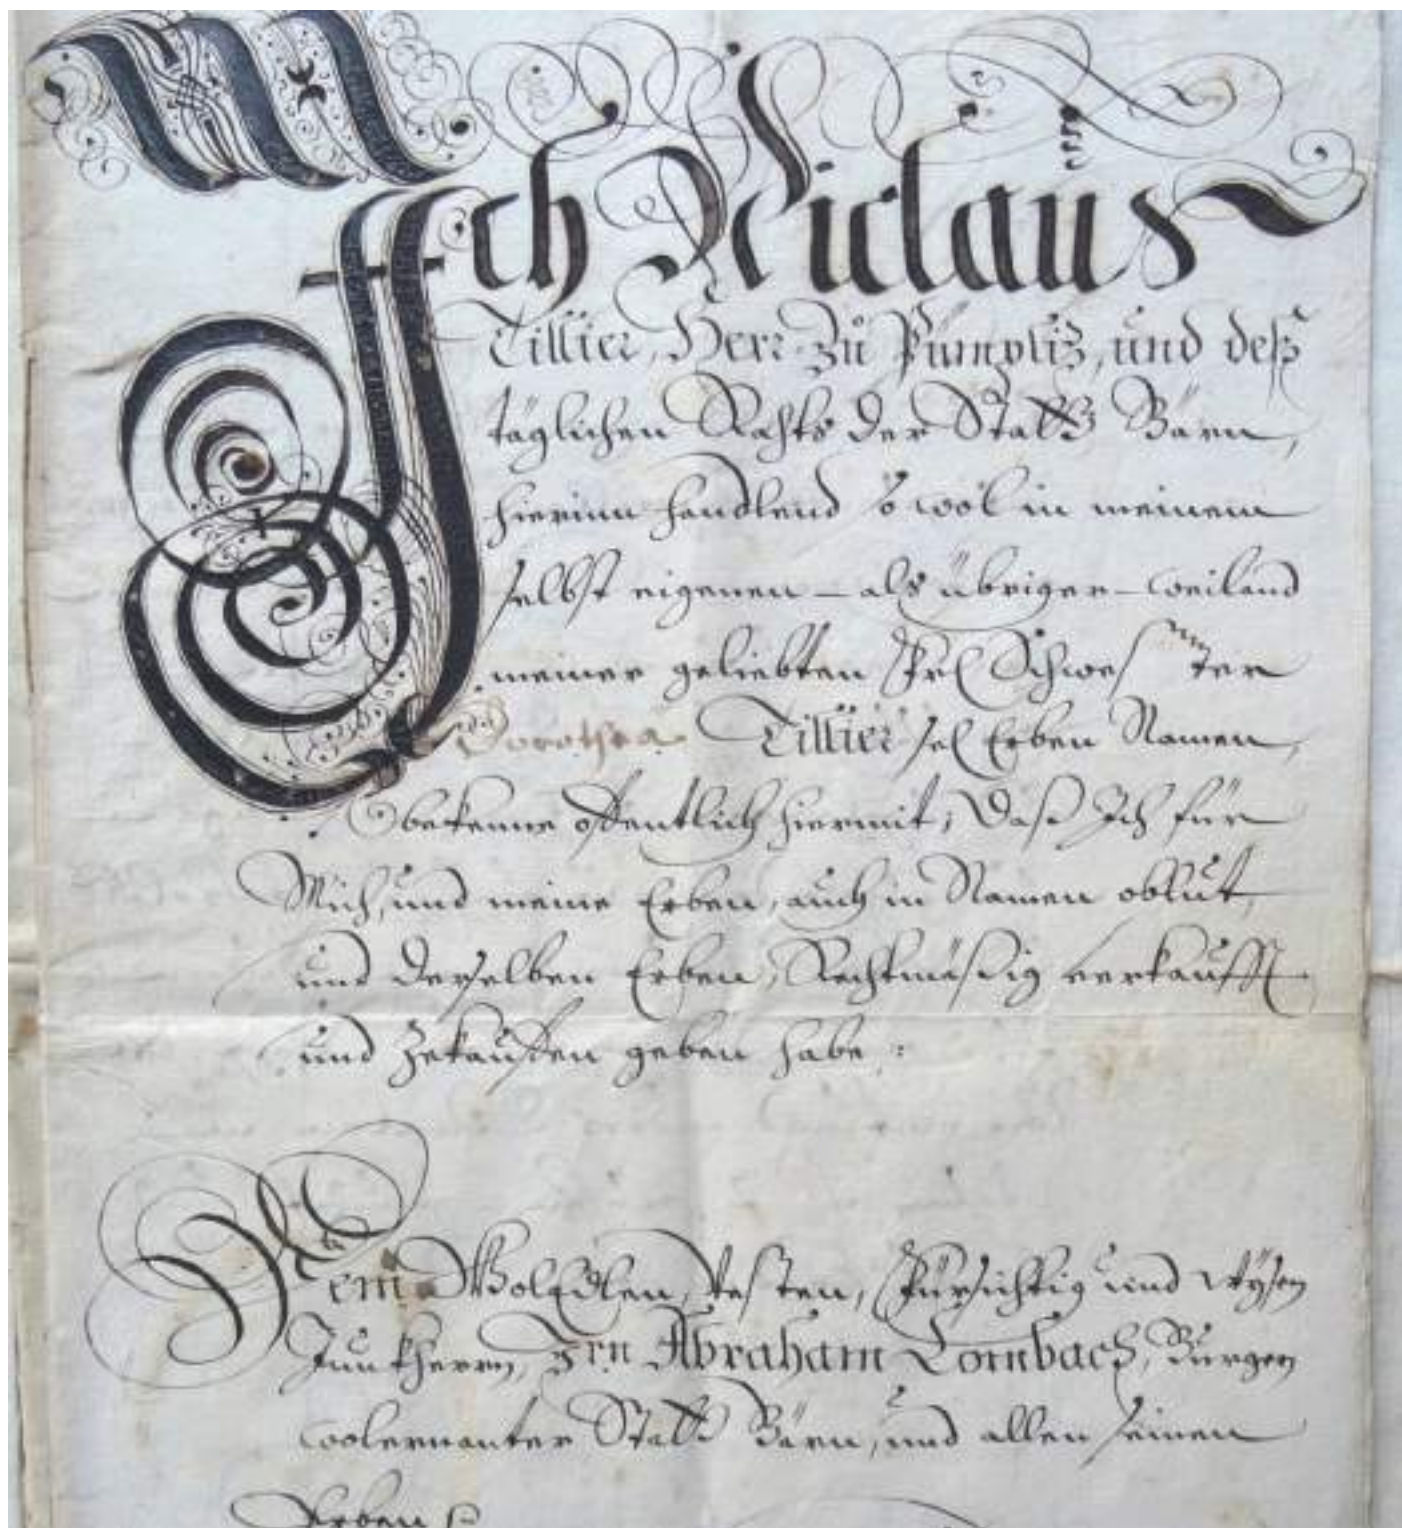 Ich Niclaus
Tillier, Herr zů Pümpliz, und deß
täglichen Rahts der Statt Bärn,
hierinn handlend so wol in meinem
selbst eigenen – als übriger – weiland
meiner geliebten Schwester
Dorothea Tillier sel Erben Namen,
bekenne offentlich hiermit, Daß Ich für
Mich, und meine Erben, auch in Namen obLut,
und derselben Erben, Rechtmäßig verkaufft
und zekauffen geben habe:
Dem WolEdlen, Vesten, Fürsichtig und Wysen
Junkherrn, Hrn Abraham Lombach, Burgern
wolernanter Statt Bärn, und allen seinen
Erben